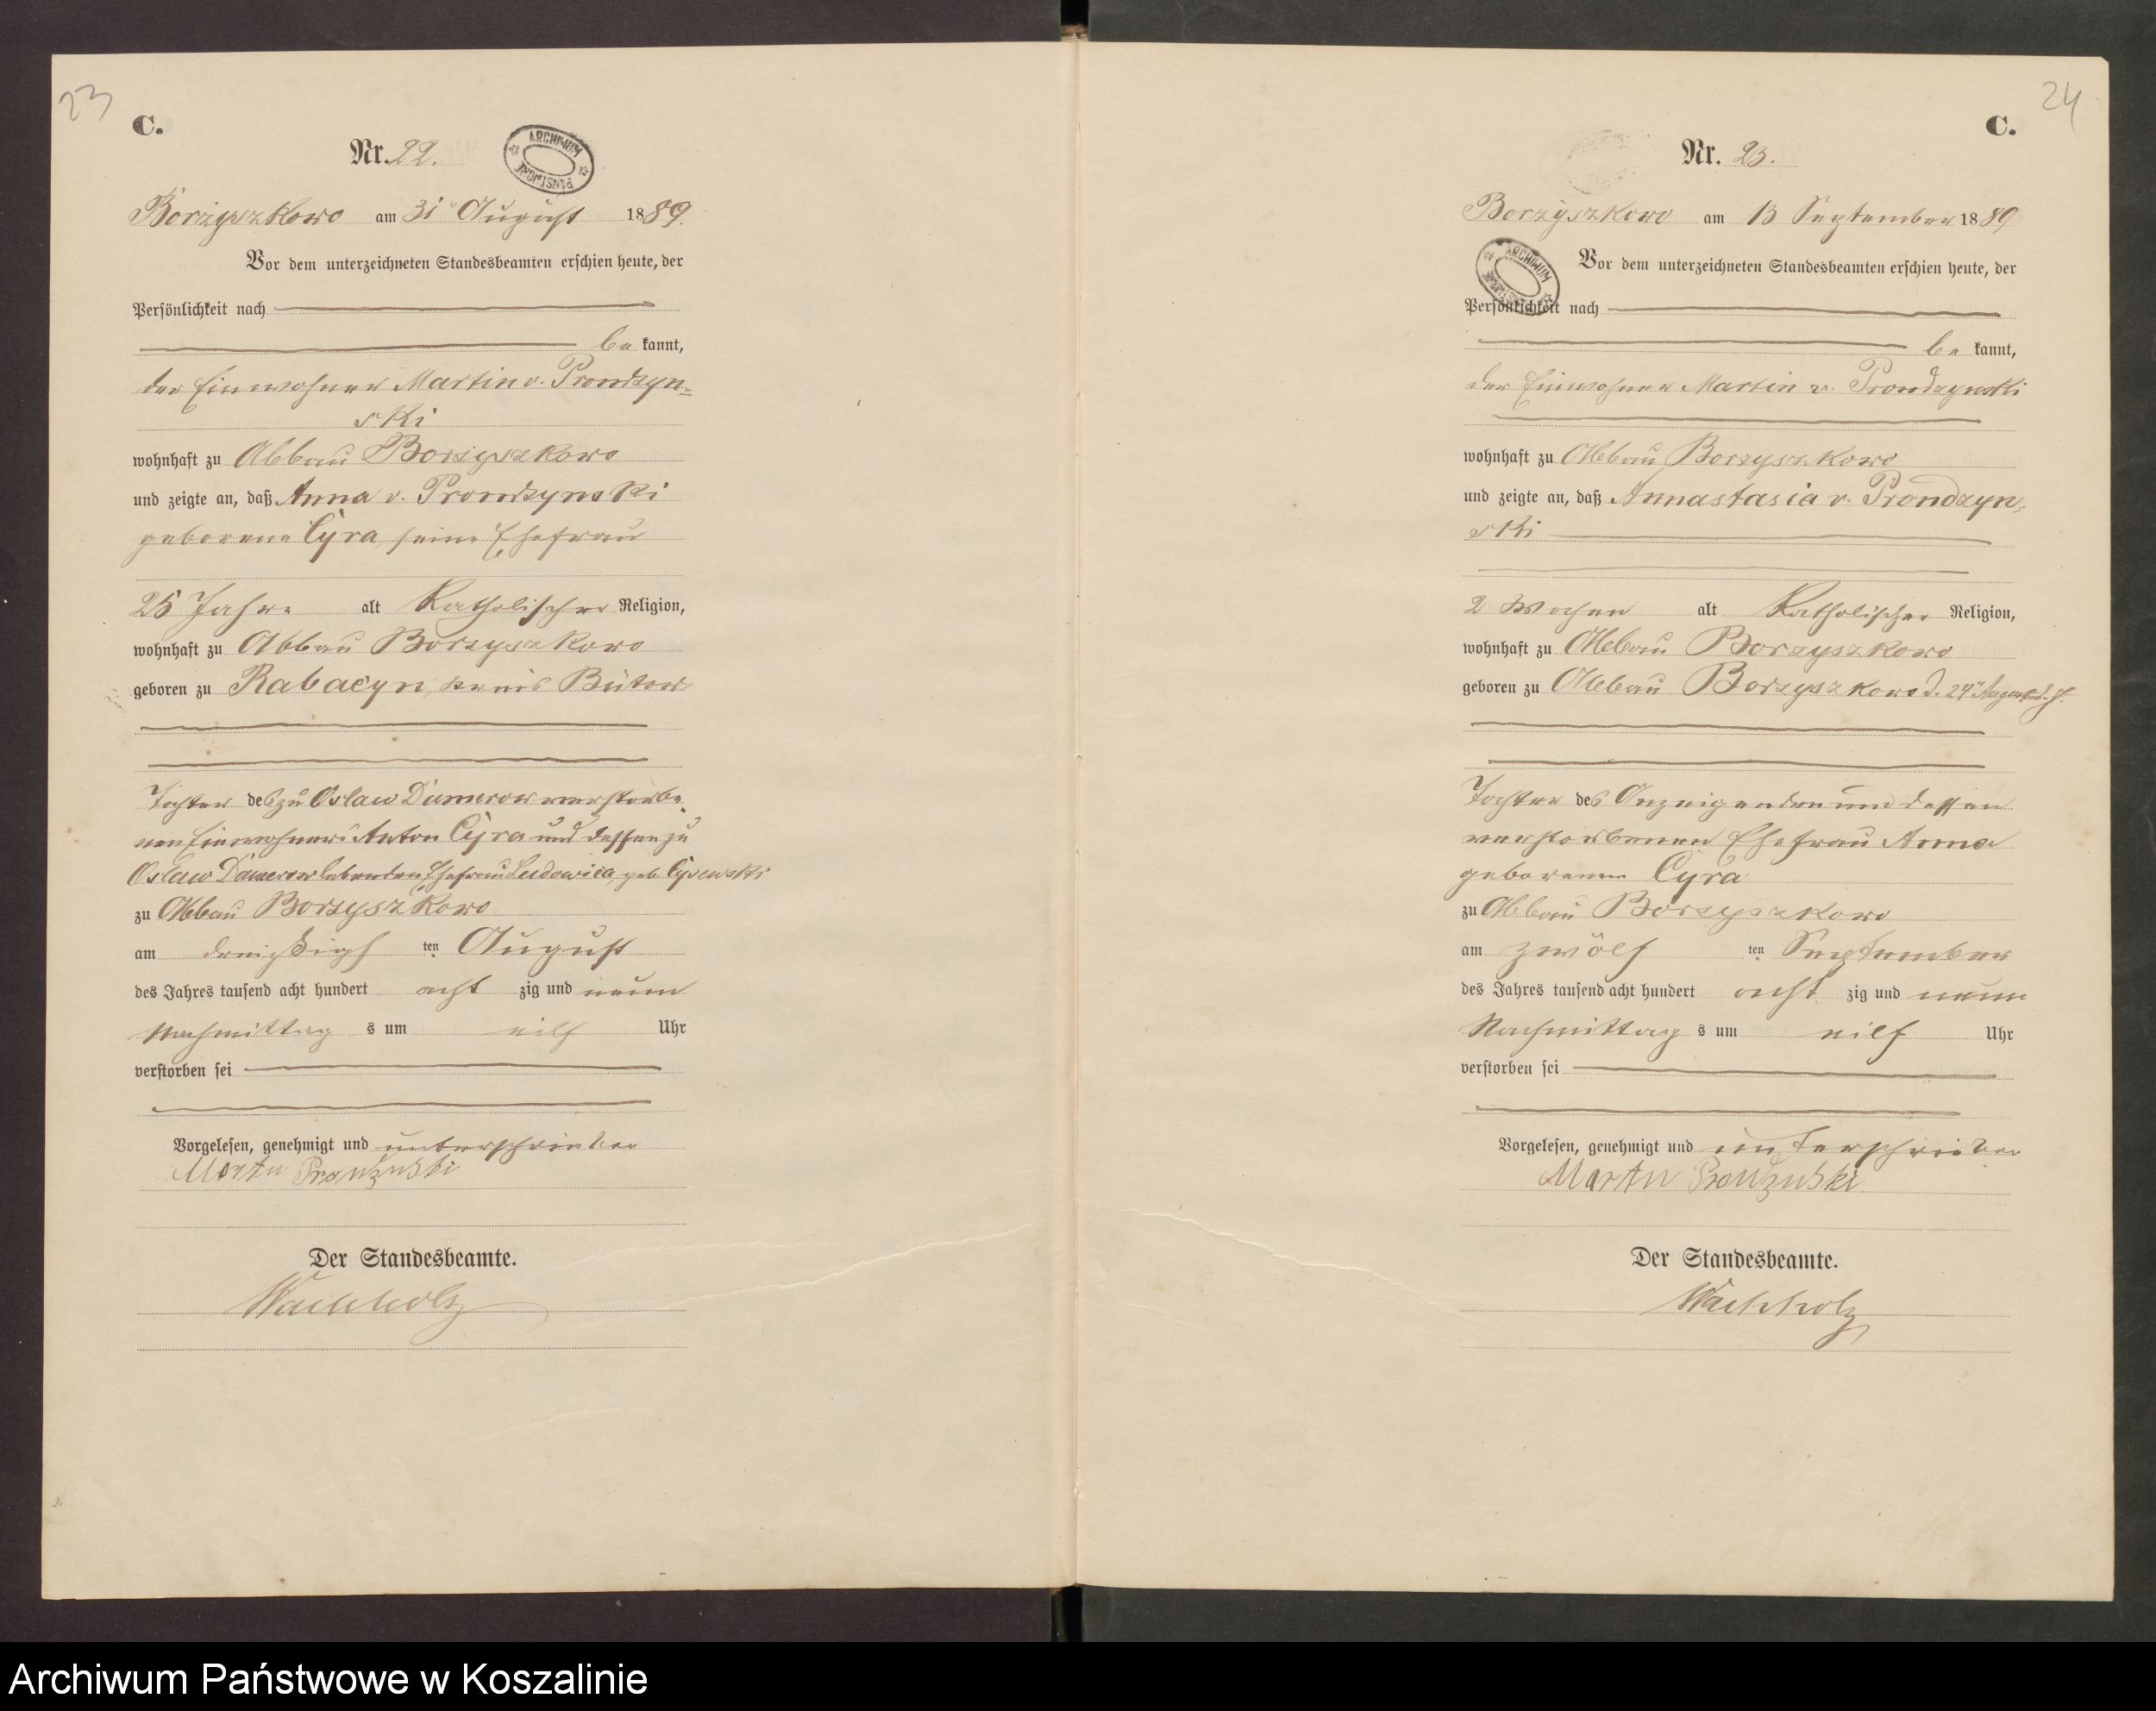 23
C.
Nr. 22.
ARCHIWUM PAŃSTWOWE
Borzyszkowo am 31 August 1889.
Vor dem unterzeichneten Standesbeamten erschien heute, der
Persönlichkeit nach
be kannt,
der Einwohner Martin v. Prondzyn=
ski
wohnhaft zu Abbau Borzyszkowo
und zeigte an, daß Anna v. Prondzynski
geborene Cyra, seine Ehefrau
25 Jahre alt Katholischer Religion,
wohnhaft zu Abbau Borzyszkowo
geboren zu Rabacyn, Kreis Bütow
Tochter des zu Oslaw Damerow verstorbe-
nen Einwohners Anton Cyra und dessen zu
Oslaw Damerow lebenden Ehefrau Ludowica, geb. Cysewski
zu Abbau Borzyszkowo
am dreißigs ten August
des Jahres tausend acht hundert acht zig und neun
Nachmittag s um eilf Uhr
verstorben sei
Vorgelesen, genehmigt und unterschrieben
Martin Pronzinski
Der Standesbeamte.
Wachholz
24
C.
Nr. 23.
Borzyszkowo am 13 September 1889
ARCHIWUM
Vor dem unterzeichneten Standesbeamten erschien heute, der
Persönlichkeit nach
be kannt,
der Einwohner Martin v. Prondzynski
wohnhaft zu Abbau Borzyszkowo
und zeigte an, daß Annastasia v. Prondzyn-
ski
2 Wochen alt Katholischer Religion,
wohnhaft zu Abbau Borzyszkowo
geboren zu Abbau Borzyszkowo d. 24t August d. J.
Tochter des Anzeigenden und dessen
verstorbenen Ehefrau Anna
geborenen Cyra
zu Abbau Borzyszkowo
am zwölf ten September
des Jahres tausend acht hundert acht zig und neun
Nachmittag s um eilf Uhr
verstorben sei
Vorgelesen, genehmigt und unterschrieben
Martin Pronzinski
Der Standesbeamte.
Wachholz
Archiwum Państwowe w Koszalinie